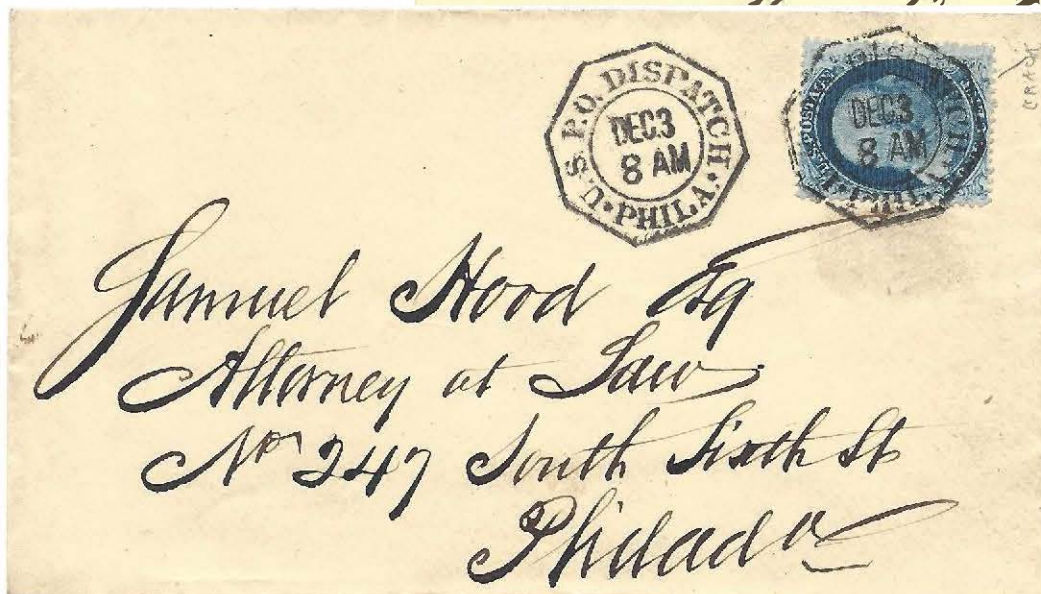 U.S. P.O. DISPATCH
DEC 3
8 AM
• PHILA •
DEC 3
8 AM
CRACK
Samuel Hood Esq
Attorney at Law
No 247 South Sixth St
Philada